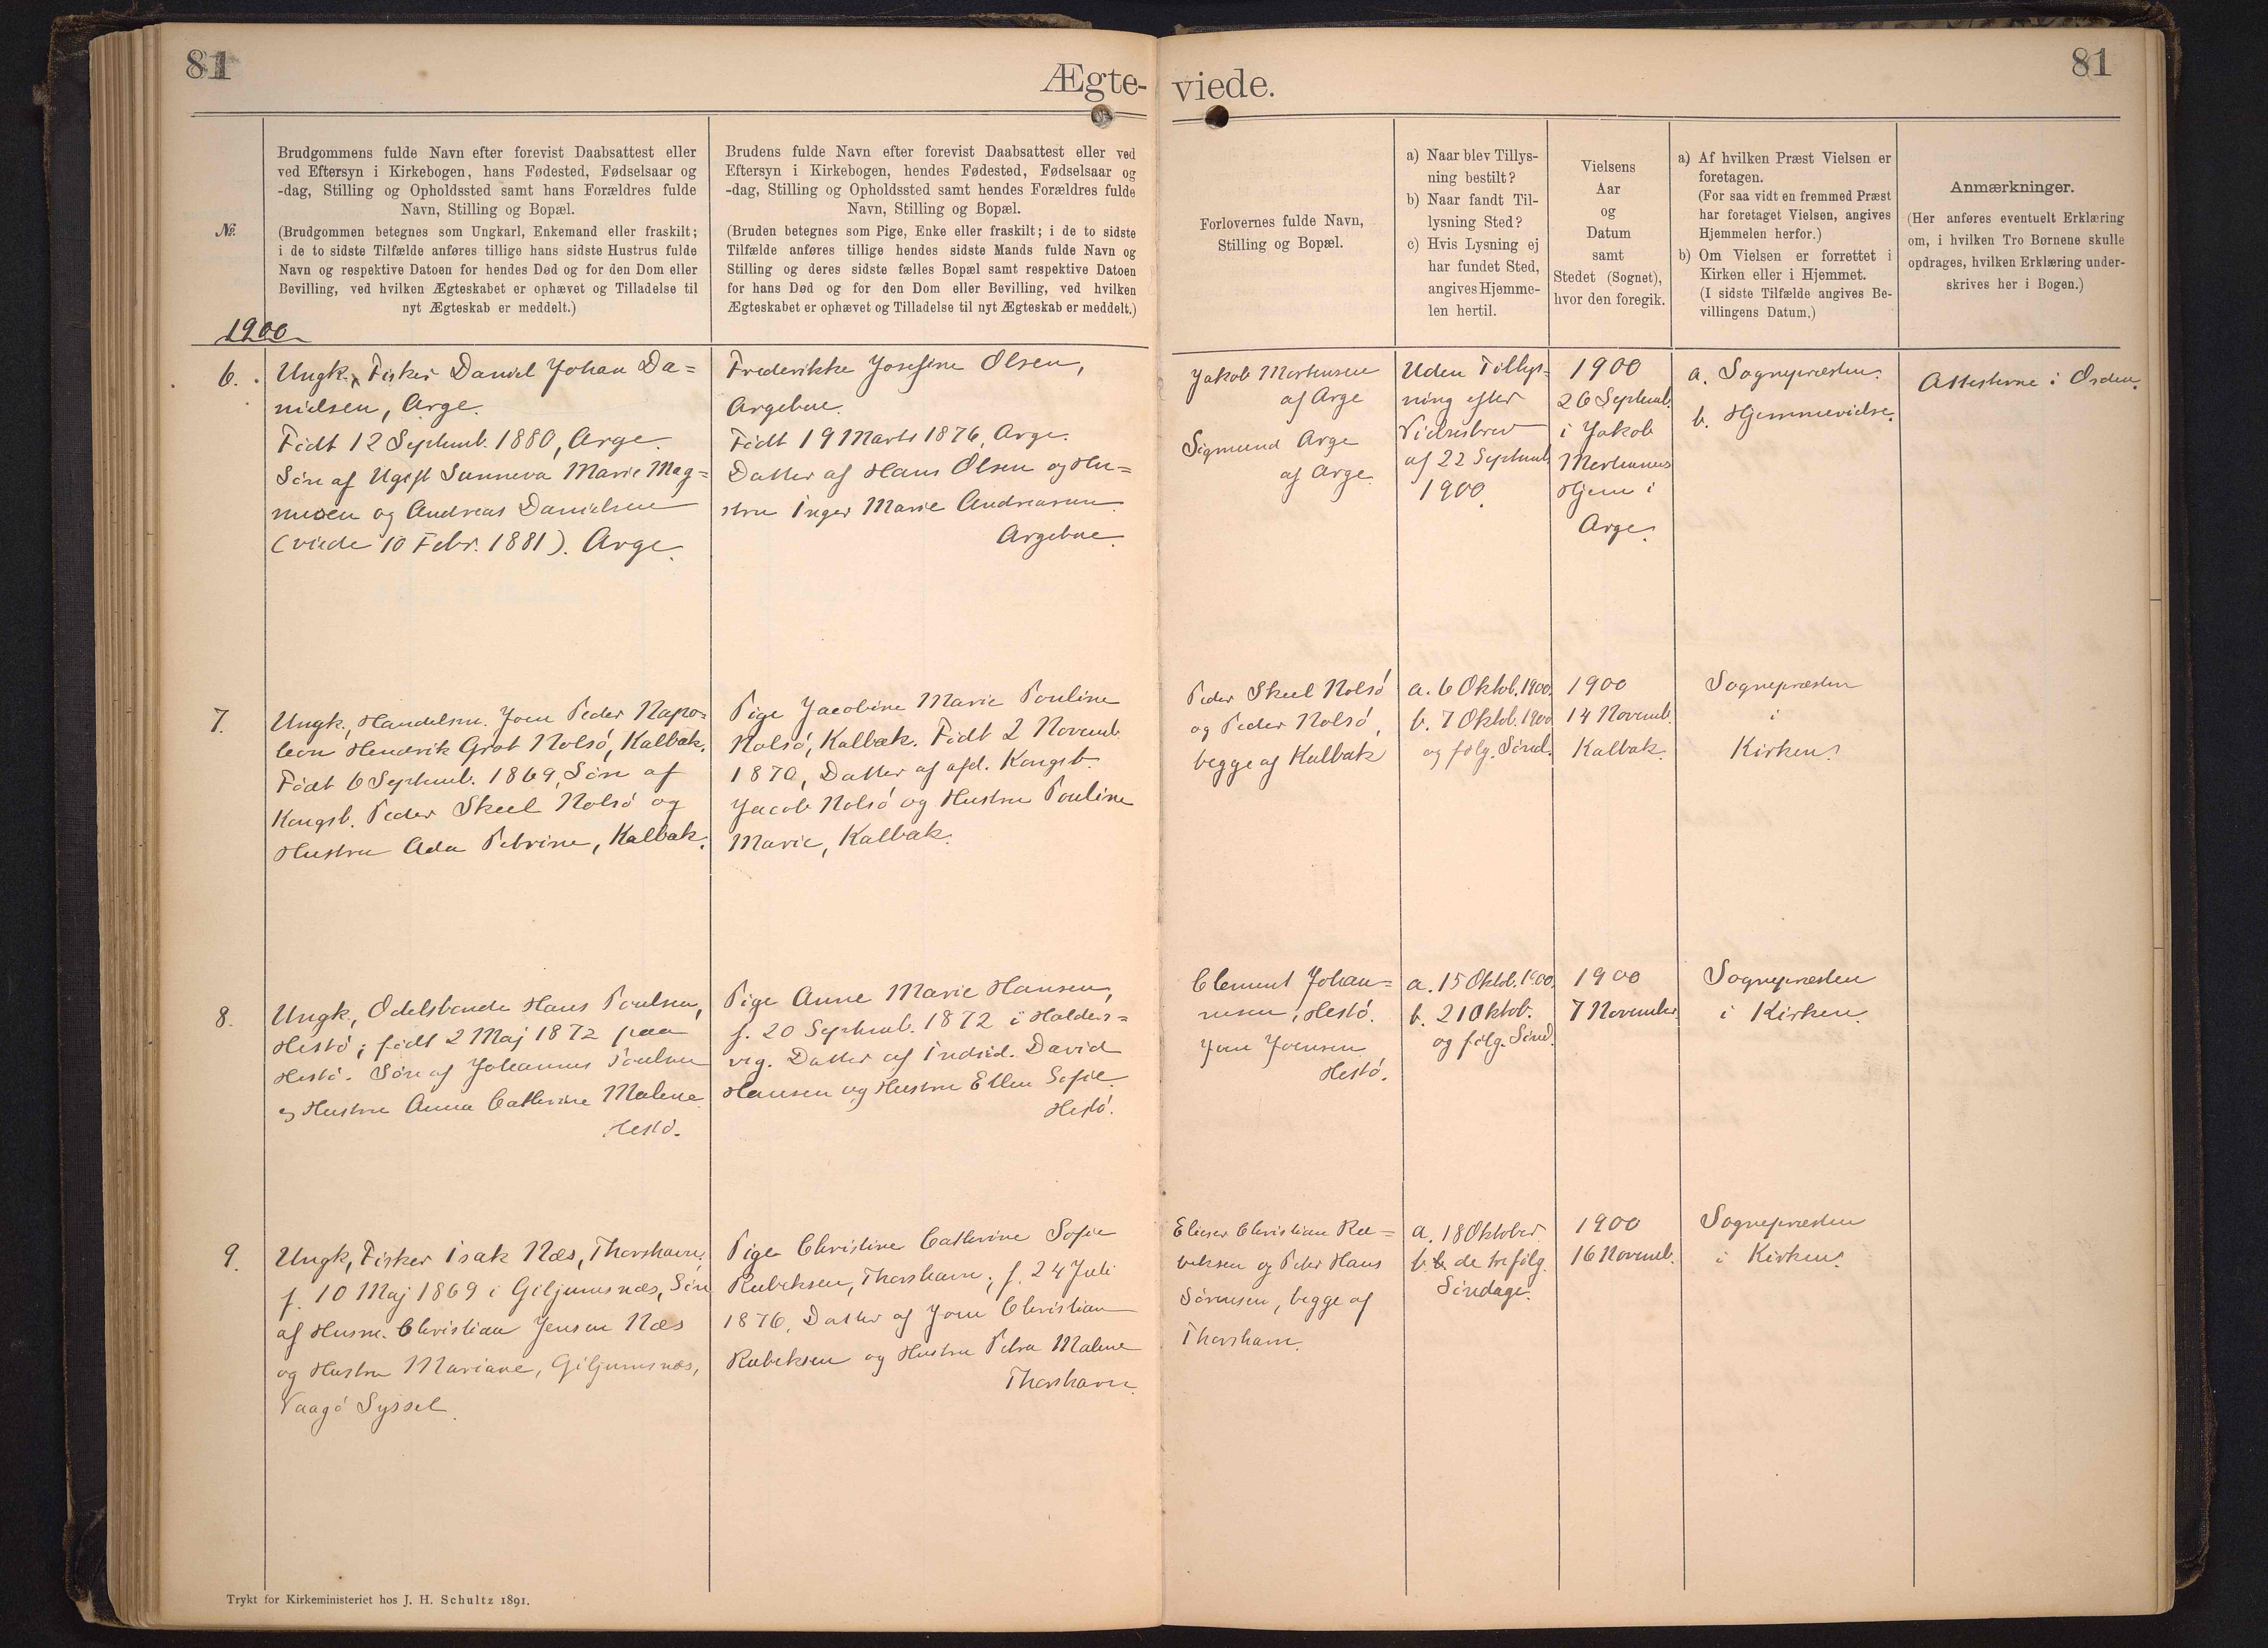 81
Ægte-
viede.
81
№
Brudgommens fulde Navn efter forevist Daabsattest eller
ved Eftersyn i Kirkebogen, hans Fødested, Fødselsaar og
-dag, Stilling og Opholdssted samt hans Forældres fulde
Navn, Stilling og Bopæl.
(Brudgommen betegnes som Ungkarl, Enkemand eller fraskilt;
i de to sidste Tilfælde anføres tillige hans sidste Hustrus fulde
Navn og respektive Datoen for hendes Død og for den Dom eller
Bevilling, ved hvilken Ægteskabet er ophævet og Tilladelse til
nyt Ægteskab er meddelt.)
Brudens fulde Navn efter forevist Daabsattest eller ved
Eftersyn i Kirkebogen, hendes Fødested, Fødselsaar og
-dag, Stilling og Opholdssted samt hendes Forældres fulde
Navn, Stilling og Bopæl.
(Bruden betegnes som Pige, Enke eller fraskilt; i de to sidste
Tilfælde anføres tillige hendes sidste Mands fulde Navn og
Stilling og deres sidste fælles Bopæl samt respektive Datoen
for hans Død og for den Dom eller Bevilling, ved hvilken
Ægteskabet er ophævet og Tilladelse til nyt Ægteskab er meddelt.)
Forlovernes fulde Navn,
Stilling og Bopæl.
a) Naar blev Tillys-
ning bestilt?
b) Naar fandt Til-
lysning Sted?
c) Hvis Lysning ej
har fundet Sted,
angives Hjemme-
len hertil.
Vielsens
Aar
og
Datum
samt
Stedet (Sognet),
hvor den foregik.
a) Af hvilken Præst Vielsen er
foretagen.
(For saa vidt en fremmed Præst
har foretaget Vielsen, angives
Hjemmelen herfor.)
b) Om Vielsen er forrettet i
Kirken eller i Hjemmet.
(I sidste Tilfælde angives Be-
villingens Datum.)
Anmærkninger.
(Her anføres eventuelt Erklæring
om, i hvilken Tro Børnene skulle
opdrages, hvilken Erklæring under-
skrives her i Bogen.)
1900
6.
Ungk., Fisker Daniel Johan Da=
nielsen, Arge.
Födt 12 Septemb. 1880, Arge.
Sön af Ugift Sunneva Marie Mag=
nusen og Andreas Danielsen
(viede 10 Febr. 1881). Arge.
Frederikke Josefine Olsen,
Argeboe.
Födt 19 Marts 1876, Arge.
Datter af Hans Olsen og Hu=
stru Inger Marie Andreasen.
Argeboe.
Jakob Mortensen
af Arge
Sigmund Arge
af Arge.
Uden Tillys=
ning efter
Vielsesbrev
af 22 Septemb.
1900.
1900
26 Septemb.
i Jakob
Mortensens
Hjem i
Arge.
a. Sognepræsten.
b. Hjemmevielse.
Attesterne i Orden.
7.
Ungk., Handelsm. Joen Peder Napo=
leon Hendrik Grot Nolsö, Kalbak.
Födt 6 Septemb. 1869, Sön af
Kongsb. Peder Skeel Nolsö og
Hustru Ada Petrine, Kalbak.
Pige Jacobine Marie Pouline
Nolsö, Kalbak. Födt 2 Novemb.
1870, Datter af afd. Kongsb.
Jacob Nolsö og Hustru Pouline
Marie, Kalbak.
Peder Skeel Nolsö
og Peder Nolsö,
begge af Kalbak
a. 6 Oktob. 1900.
b. 7 Oktob. 1900
og følg. Sönd.
1900
14 Novemb.
Kalbak.
Sognepræsten
i
Kirken.
8.
Ungk., Odelsbonde Hans Poulsen,
Hestö; födt 2 Maj 1872 paa
Hestö. Sön af Johannes Poulsen
og Hustru Anna Cathrine Malene
Hestö.
Pige Anne Marie Hansen,
f. 20 Septemb. 1872 i Holders=
vig. Datter af Indsid. David
Hansen og Hustru Ellen Sofie.
Hestö.
Clement Johan=
nesen, Hestö.
Joen Joensen
Hestö.
a. 15 Oktob. 1900.
b. 21 Oktob.
og følg. Sönd.
1900
7 November
Sognepræsten
i Kirken.
9.
Ungk., Fisker Isak Næs, Thorshavn,
f. 10 Maj 1869 i Giljumsnæs, Sön
af Husm. Christian Jensen Næs
og Hustru Mariane, Giljumsnæs,
Vaagö Syssel.
Pige Christine Cathrine Sofie
Rubeksen, Thorshavn; f. 24 Juli
1876, Datter af Joen Christian
Rubeksen og Hustru Petra Malene
Thorshavn.
Elieser Christian Ru=
beksen og Peter Hans
Sörensen, begge af
Thorshavn.
a. 18 Oktober
b. de tre følg.
Söndage.
1900
16 Novemb.
Sognepræsten
i Kirken.
Trykt for Kirkeministeriet hos J. H. Schultz 1891.